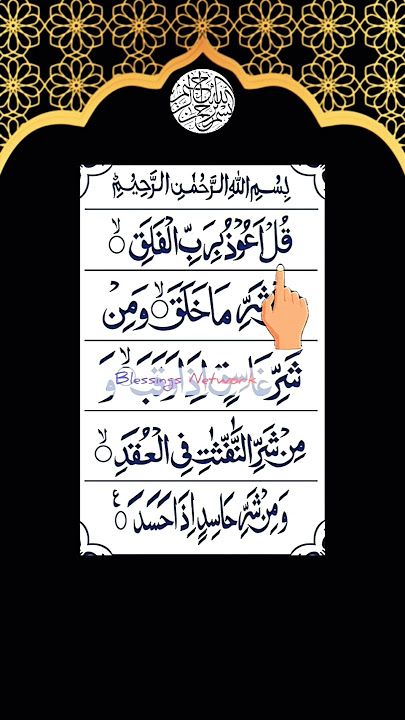 بِسْمِ اللهِ الرَّحْمٰنِ الرَّحِيْمِ
قُلْ اَعُوْذُ بِرَبِّ الْفَلَقِ ۙ
شَرِّ مَا خَلَقَ ۙ وَ مِنْ
شَرِّ غَاسِقٍ اِذَا وَقَبَ ۙ وَ
Blessings Network
مِنْ شَرِّ النَّفّٰثٰتِ فِي الْعُقَدِ ۙ
وَ مِنْ شَرِّ حَاسِدٍ اِذَا حَسَدَ ۧ